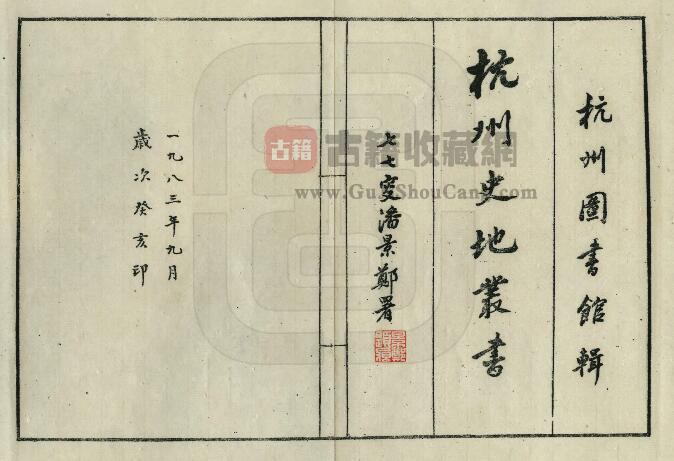 杭州圖書館輯
杭州史地叢書
七七叟潘景鄭署
一九八三年九月
歲次癸亥印
古籍
古籍收藏網
www.GujiShouCang.com